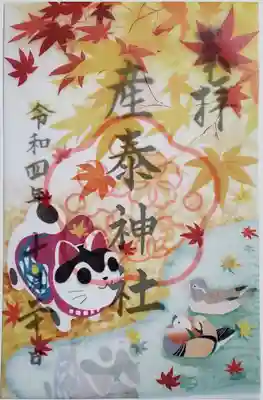 奉拝
産泰神社
令和四年十一月二十日